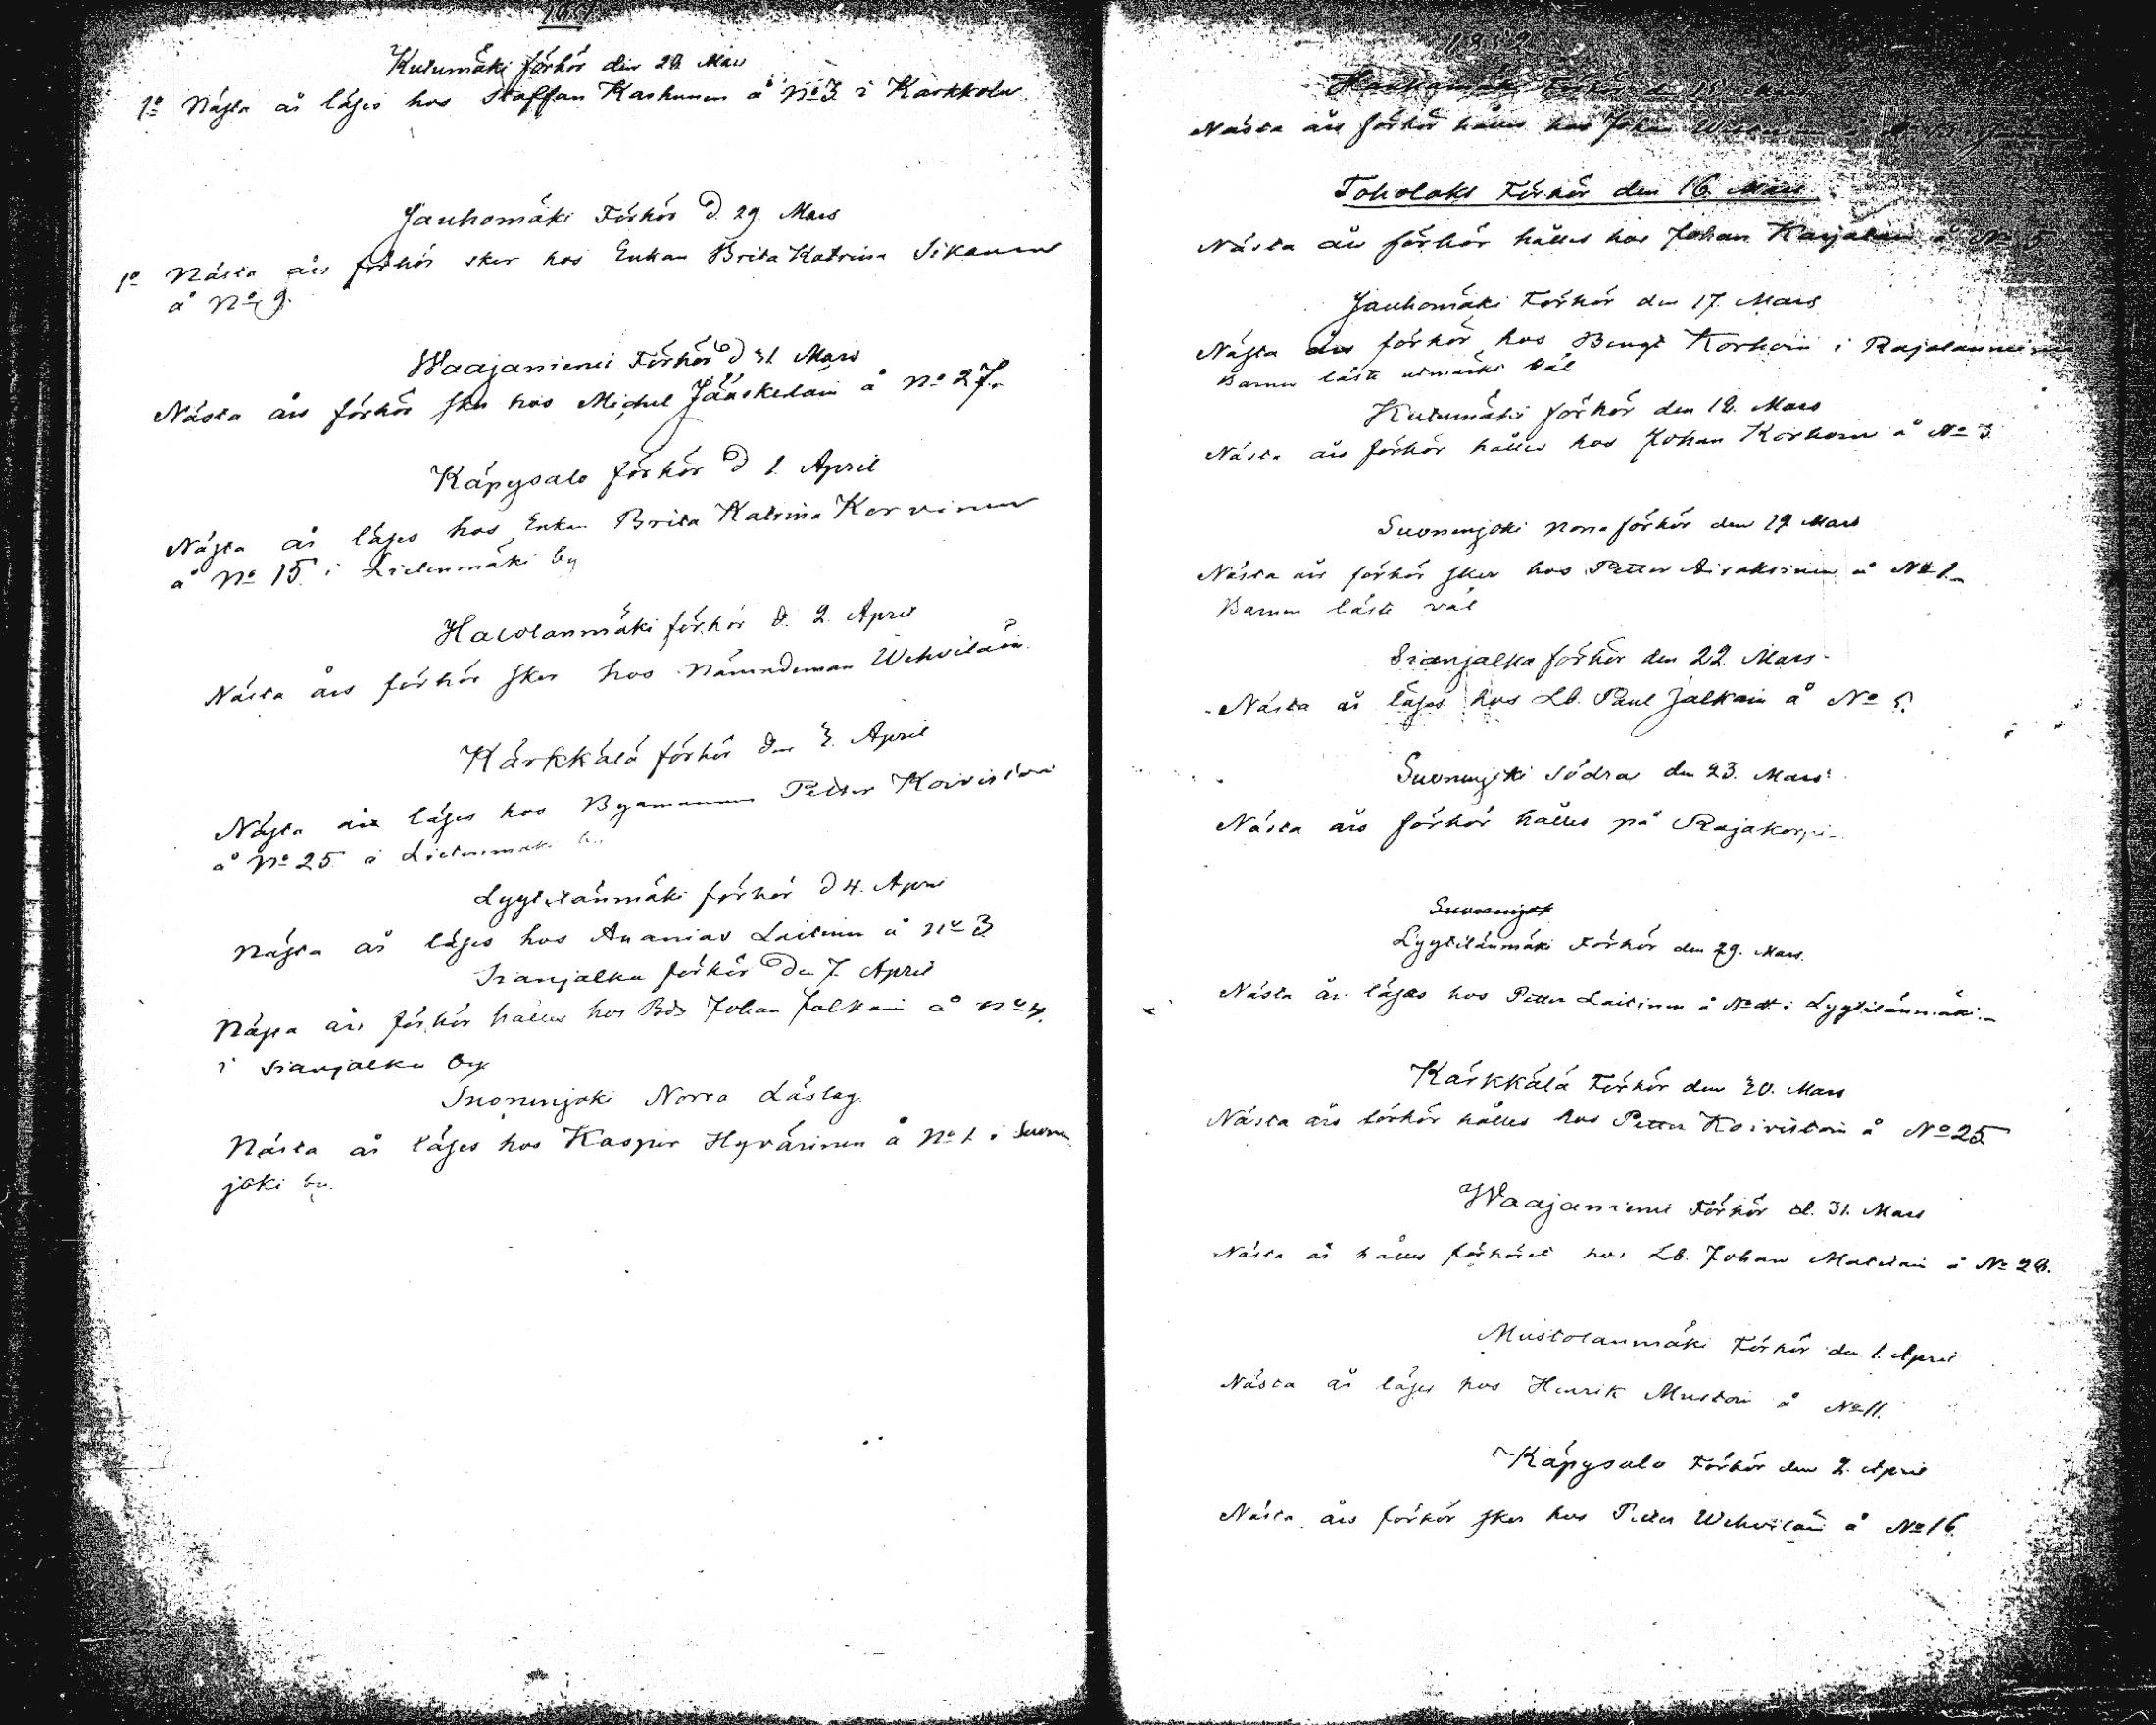 1851
Kutumäki förhör den 28. Mars
1o Nästa år läses hos Staffan Karhunen å No 3 i Karkkola
Jauhomäki Förhör d. 29. Mars
1o Nästa års förhör sker hos Enkan Brita Katrina Sikanen
å No 9.
Waajaniemi Förhör d 31 Mars
Nästa års förhör sker hos Michel Jääskeläin å No 27.
Käpysalo förhör d 1. April
Nästa år läses hos Enkan Brita Katrina Korvinen
å No 15. i Lietenmäki by
Halolanmäki förhör d. 2. April
Nästa års förhör sker hos Nämndeman Wehviläin
Kärkkälä förhör den 3. April
Nästa år läses hos Byamannen Petter Koivistoin
å No 25 i Lietenmäki
Lyytilänmäki förhör d 4. April
Nästa år läses hos Ananias Laitinen å No 3
Sianjalka förhör den 7. April
Nästa års förhör hålles hos Bds Johan Jalkain å No 4.
i Sianjalka by
Suonenjoki Norra Läslag.
Nästa år läses hos Kasper Hyvärinen å No 1 i Suonen
joki by.
1852
Förhör den Mars
Nästa års förhör hålles hos Johan
Toholaks Förhör den 16. Mars
Nästa års förhör hålles hos Johan Karjalain å No 5
Jauhomäki Förhör den 17. Mars
Nästa års förhör hos Bengt Korhoin i Rajalanniemi
Barnen läste utmärkt väl
Kutumäki förhör den 18. Mars
Nästa års förhör hålles hos Johan Korhonen å No 3
Suonenjoki Norra förhör den 19 Mars
Nästa års förhör sker hos Petter Airaksinen å No 1.
Barnen läste väl
Sianjalka förhör den 22. Mars
Nästa år läses hos Lb. Paul Jalkain å No 5.
Suonenjoki södra den 23. Mars
Nästa års förhör hålles på Rajakorpi
Suonenjok
Lyytilänmäki Förhör den 29. Mars.
Nästa år läses hos Petter Laitinen å No 4 i Lyytilänmäki.
Kärkkälä Förhör den 30. Mars
Nästa års förhör hålles hos Petter Koivistoin å No 25
Waajaniemi Förhör d. 31. Mars
Nästa år hålles förhöret hos Lb. Johan Matilain å No 28.
Mustolanmäki Förhör den 1. April
Nästa år läses hos Henrik Mustoin å No 11.
Käpysalo Förhör den 2. April
Nästa års förhör sker hos Petter Wehviläin å No 16.